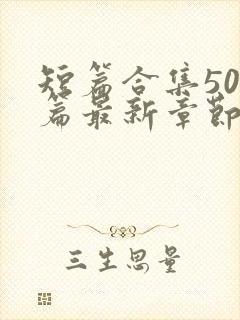 短篇合集50
篇最新章节
三生思量